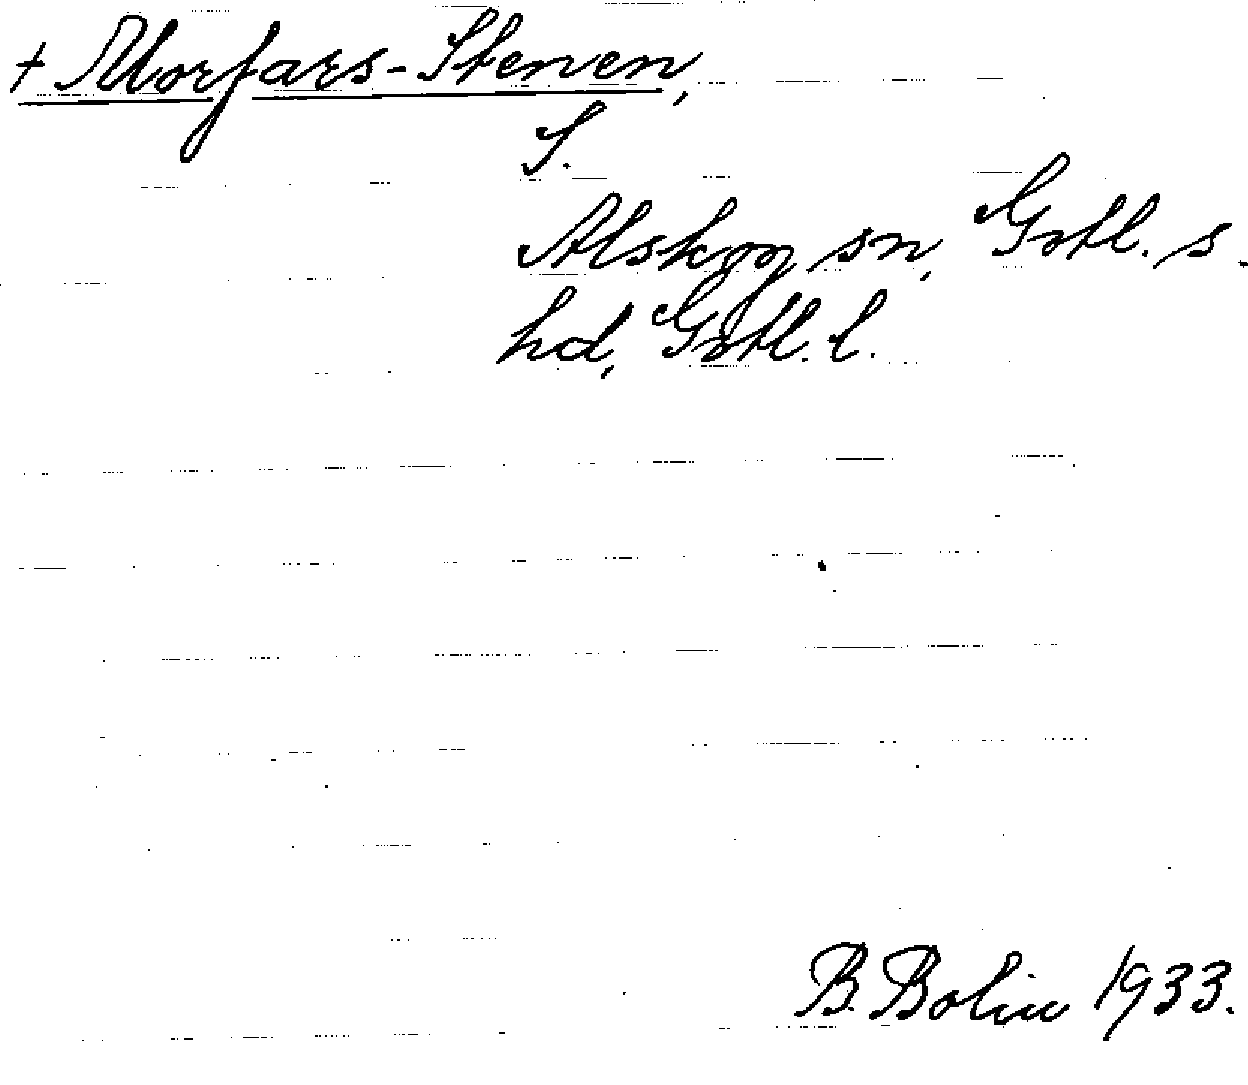 + Morfars-Stenen,
S.
Alskog sn, Gotl. s.
hd, Gotl. l.
B. Bolin 1933.